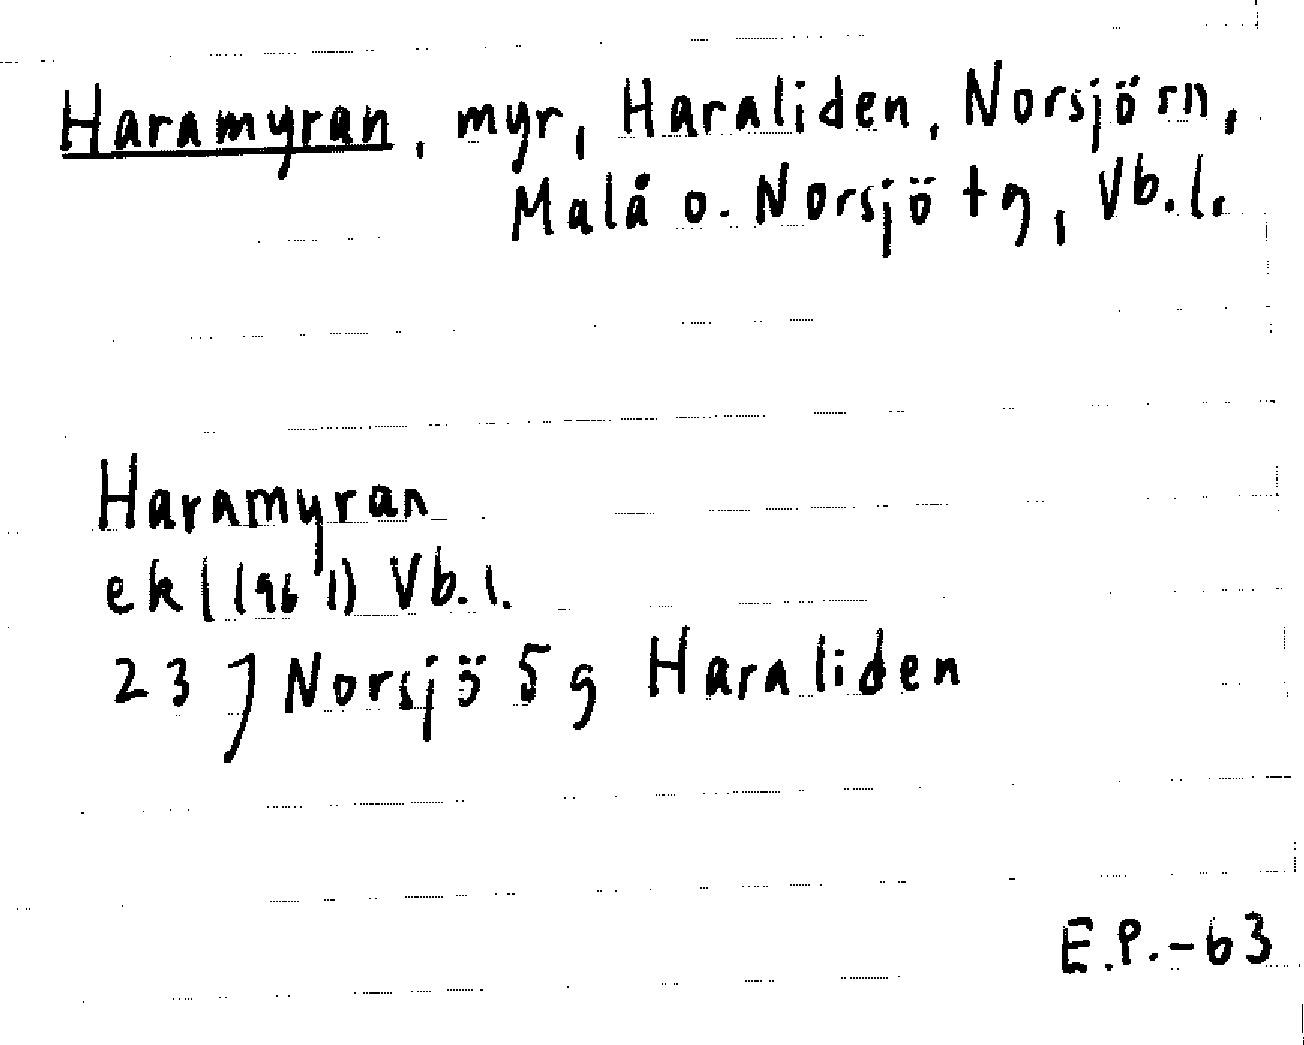 Haramyran, myr, Haraliden, Norsjö sn,
Malå o. Norsjö tg, Vb.l.
Haramyran
ek (1961) Vb.l.
23 J Norsjö 5 g Haraliden
E.P.-63